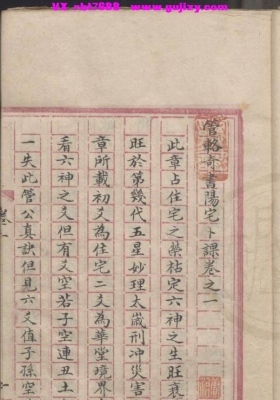 VX abt7888 www.gujizy.com
管輅奇書陽宅卜課卷之一
此章占住宅之榮枯定六神之生旺衰
旺於第幾代五星妙理太歲刑冲災害
章所載初爻為住宅二爻為華堂境界
看六神之爻但有爻空若子空連丑土
一失此管公真訣但見六爻值子孫空